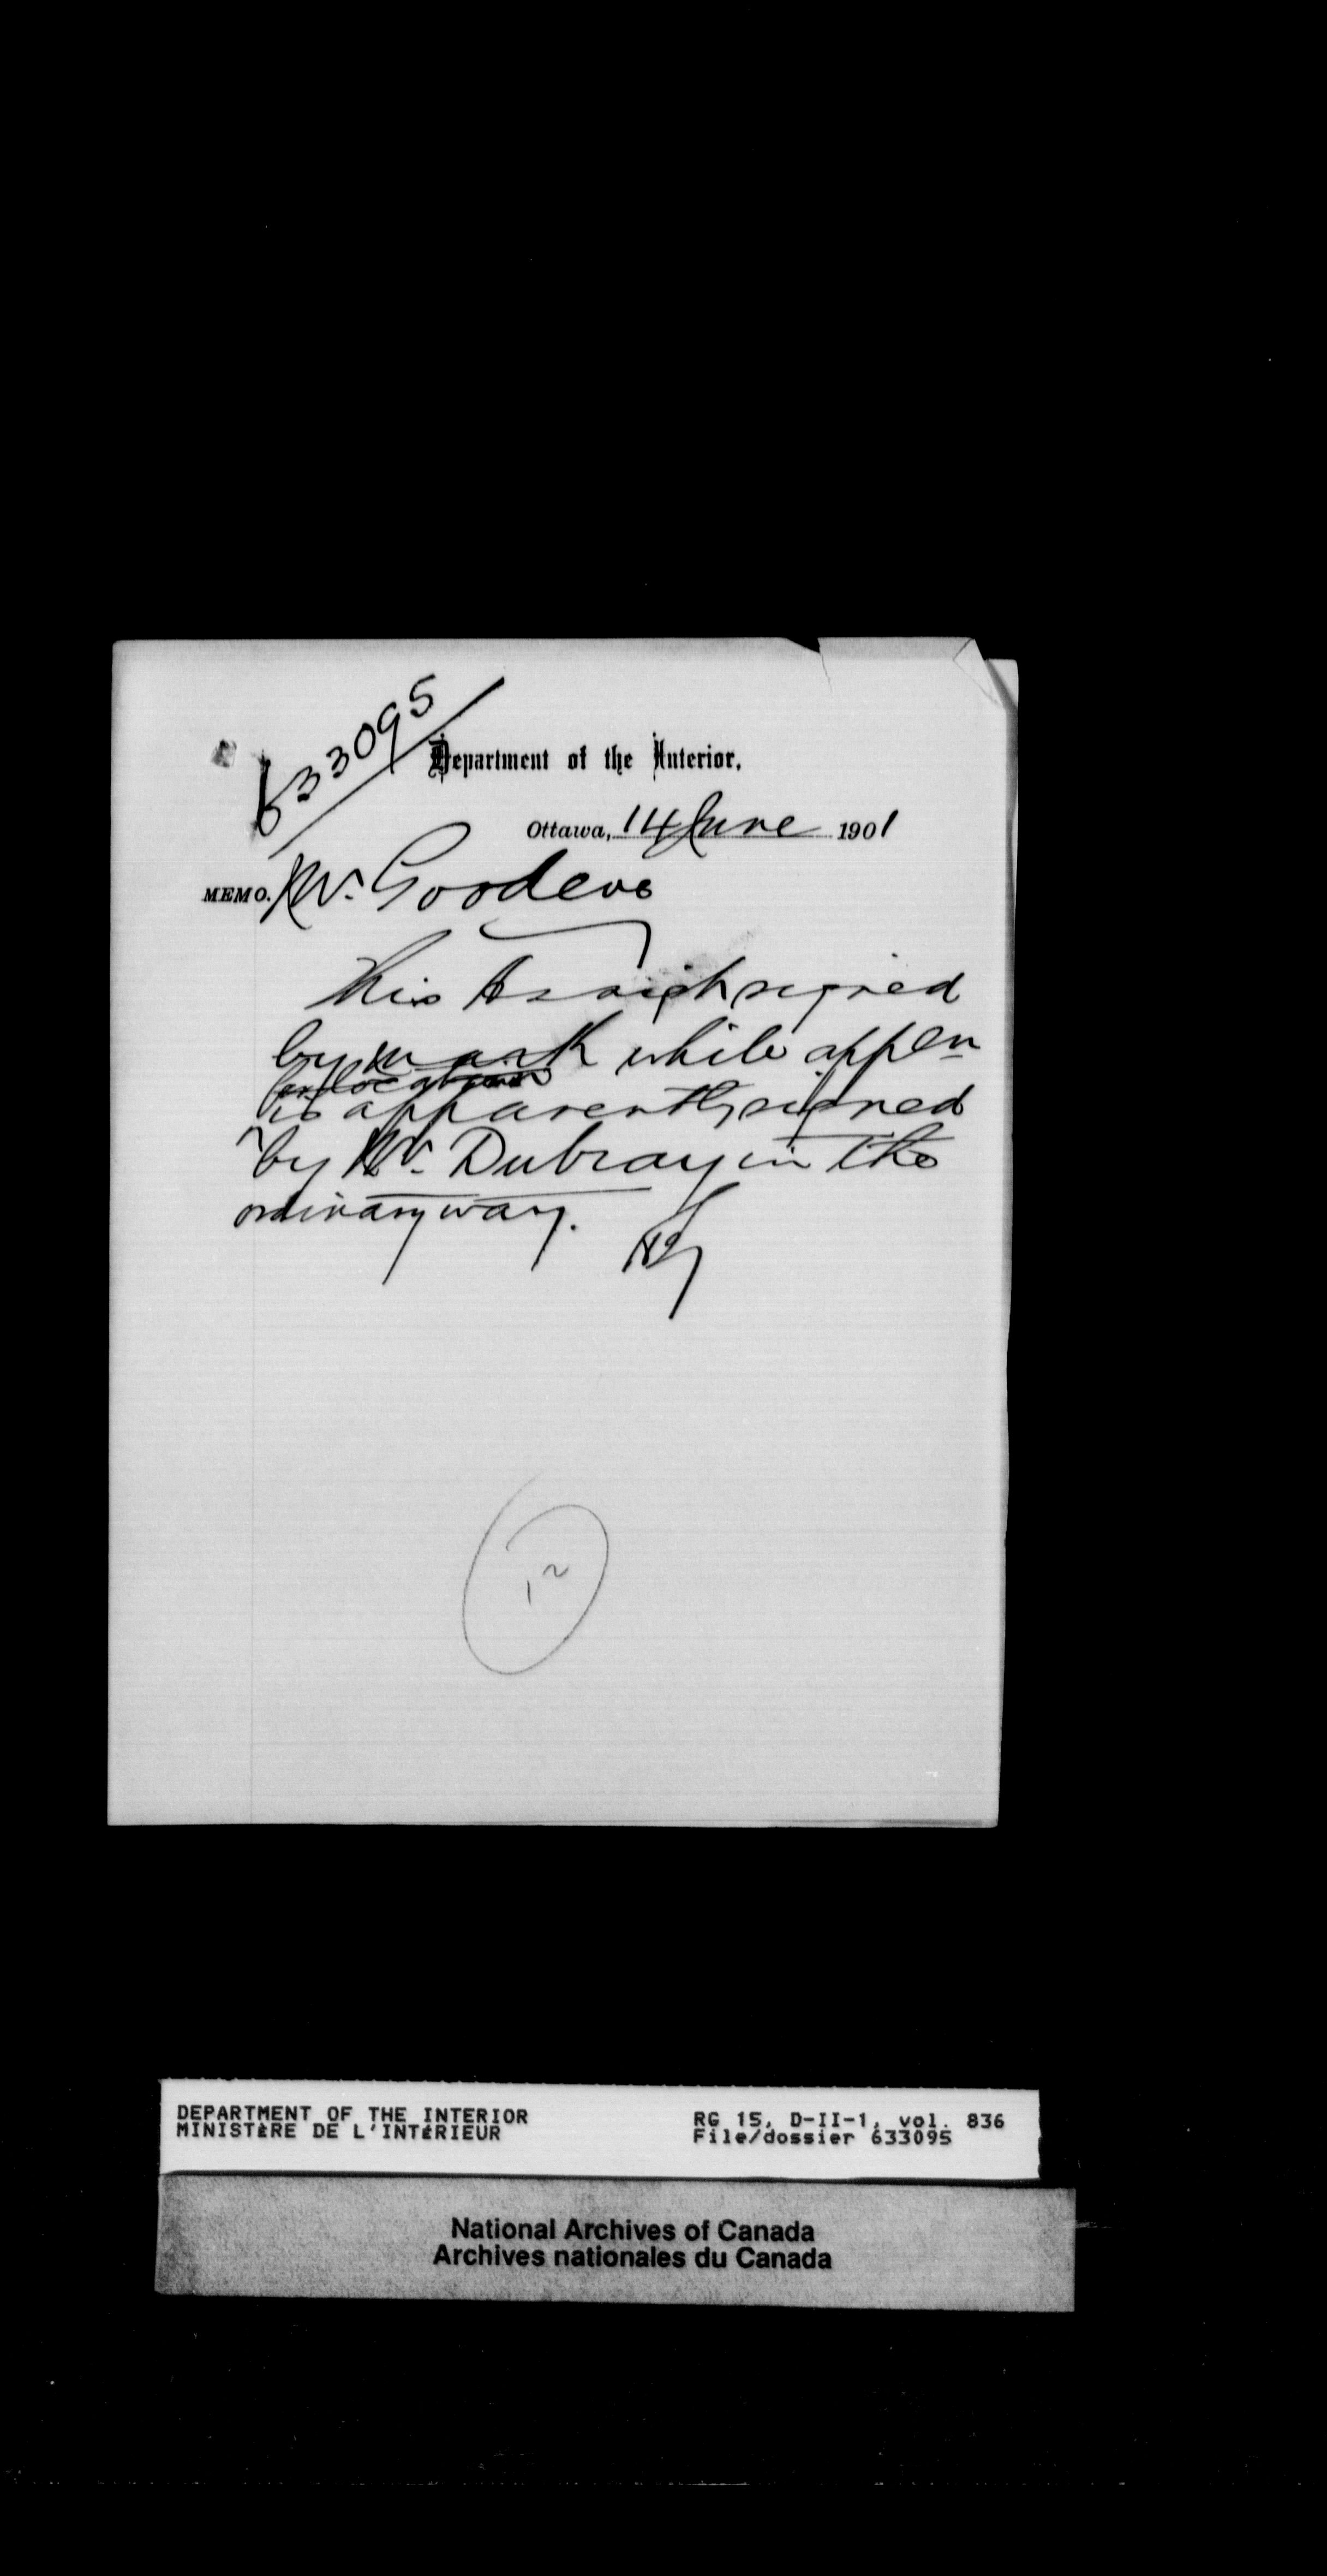 633095
Department of the Interior,
Ottawa, 14 June 1901
MEMO. Mr. Goodeve
This Assigt signed
by mark while appln
for location
is apparently signed
by Mr. Dubray in the
ordinary way.
12
DEPARTMENT OF THE INTERIOR
MINISTÈRE DE L'INTÉRIEUR
RG 15, D-II-1, vol. 836
File/dossier 633095
National Archives of Canada
Archives nationales du Canada